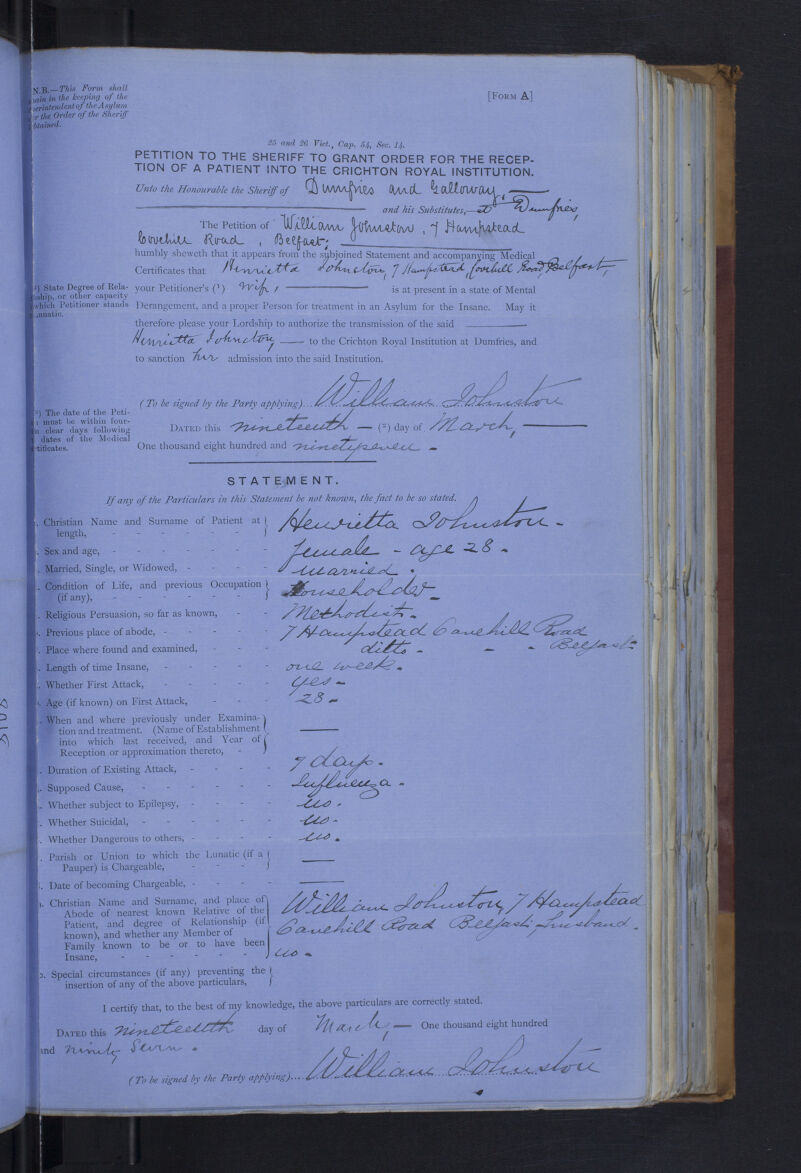 N.B.—This Form shall
in the keeping of the
of the Asylum
the Order of the Sheriff
[FORM A]
25 and 26 Vict., Cap. 54, Sec. 14.
PETITION TO THE SHERIFF TO GRANT ORDER FOR THE RECEP-
TION OF A PATIENT INTO THE CRICHTON ROYAL INSTITUTION.
Unto the Honourable the Sheriff of Dumfries and Galloway,
and his Substitutes,—at Dumfries,
The Petition of William Johnston, 7 Hampstead
Cavehill Road, Belfast;
humbly sheweth that it appears from the subjoined Statement and accompanying Medical
Certificates that Henrietta Johnston, 7 Hampstead Cavehill Road, Belfast,
(1) State Degree of Rela-
tionship, or other capacity
which Petitioner stands
your Petitioner's (1) Wife, is at present in a state of Mental
Derangement, and a proper Person for treatment in an Asylum for the Insane. May it
therefore please your Lordship to authorize the transmission of the said
Henrietta Johnston, — to the Crichton Royal Institution at Dumfries, and
to sanction her admission into the said Institution.
(To be signed by the Party applying)... William Johnston
(2) The date of the Peti-
must be within four-
clear days following
dates of the Medical
DATED this nineteenth — (2) day of March,
One thousand eight hundred and ninetyseven -
STATEMENT.
If any of the Particulars in this Statement be not known, the fact to be so stated.
Christian Name and Surname of Patient at length, Henrietta Johnston -
Sex and age, - female - age 28 -
Married, Single, or Widowed, - married.
Condition of Life, and previous Occupation (if any), - Householder -
Religious Persuasion, so far as known, - Methodist -
Previous place of abode, - 7 Hampstead Cavehill Road
Belfast
Place where found and examined, - ditto -
Length of time Insane, - one week -
Whether First Attack, - yes -
Age (if known) on First Attack, - 28 -
When and where previously under Examina-
tion and treatment. (Name of Establishment
into which last received, and Year of
Reception or approximation thereto, - —
Duration of Existing Attack, - 7 days -
Supposed Cause, - Influenza -
Whether subject to Epilepsy, - no.
Whether Suicidal, - no -
Whether Dangerous to others, - no.
Parish or Union to which the Lunatic (if a
Pauper) is Chargeable, - —
Date of becoming Chargeable, - —
Christian Name and Surname, and place of
Abode of nearest known Relative of the
Patient, and degree of Relationship (if
known), and whether any Member of
Family known to be or to have been
Insane, -
William Johnston, 7 Hampstead
Cavehill Road Belfast, husband.
no -
Special circumstances (if any) preventing the
insertion of any of the above particulars,
I certify that, to the best of my knowledge, the above particulars are correctly stated.
DATED this nineteenth day of March, — One thousand eight hundred
and ninety seven -
(To be signed by the Party applying)... William Johnston